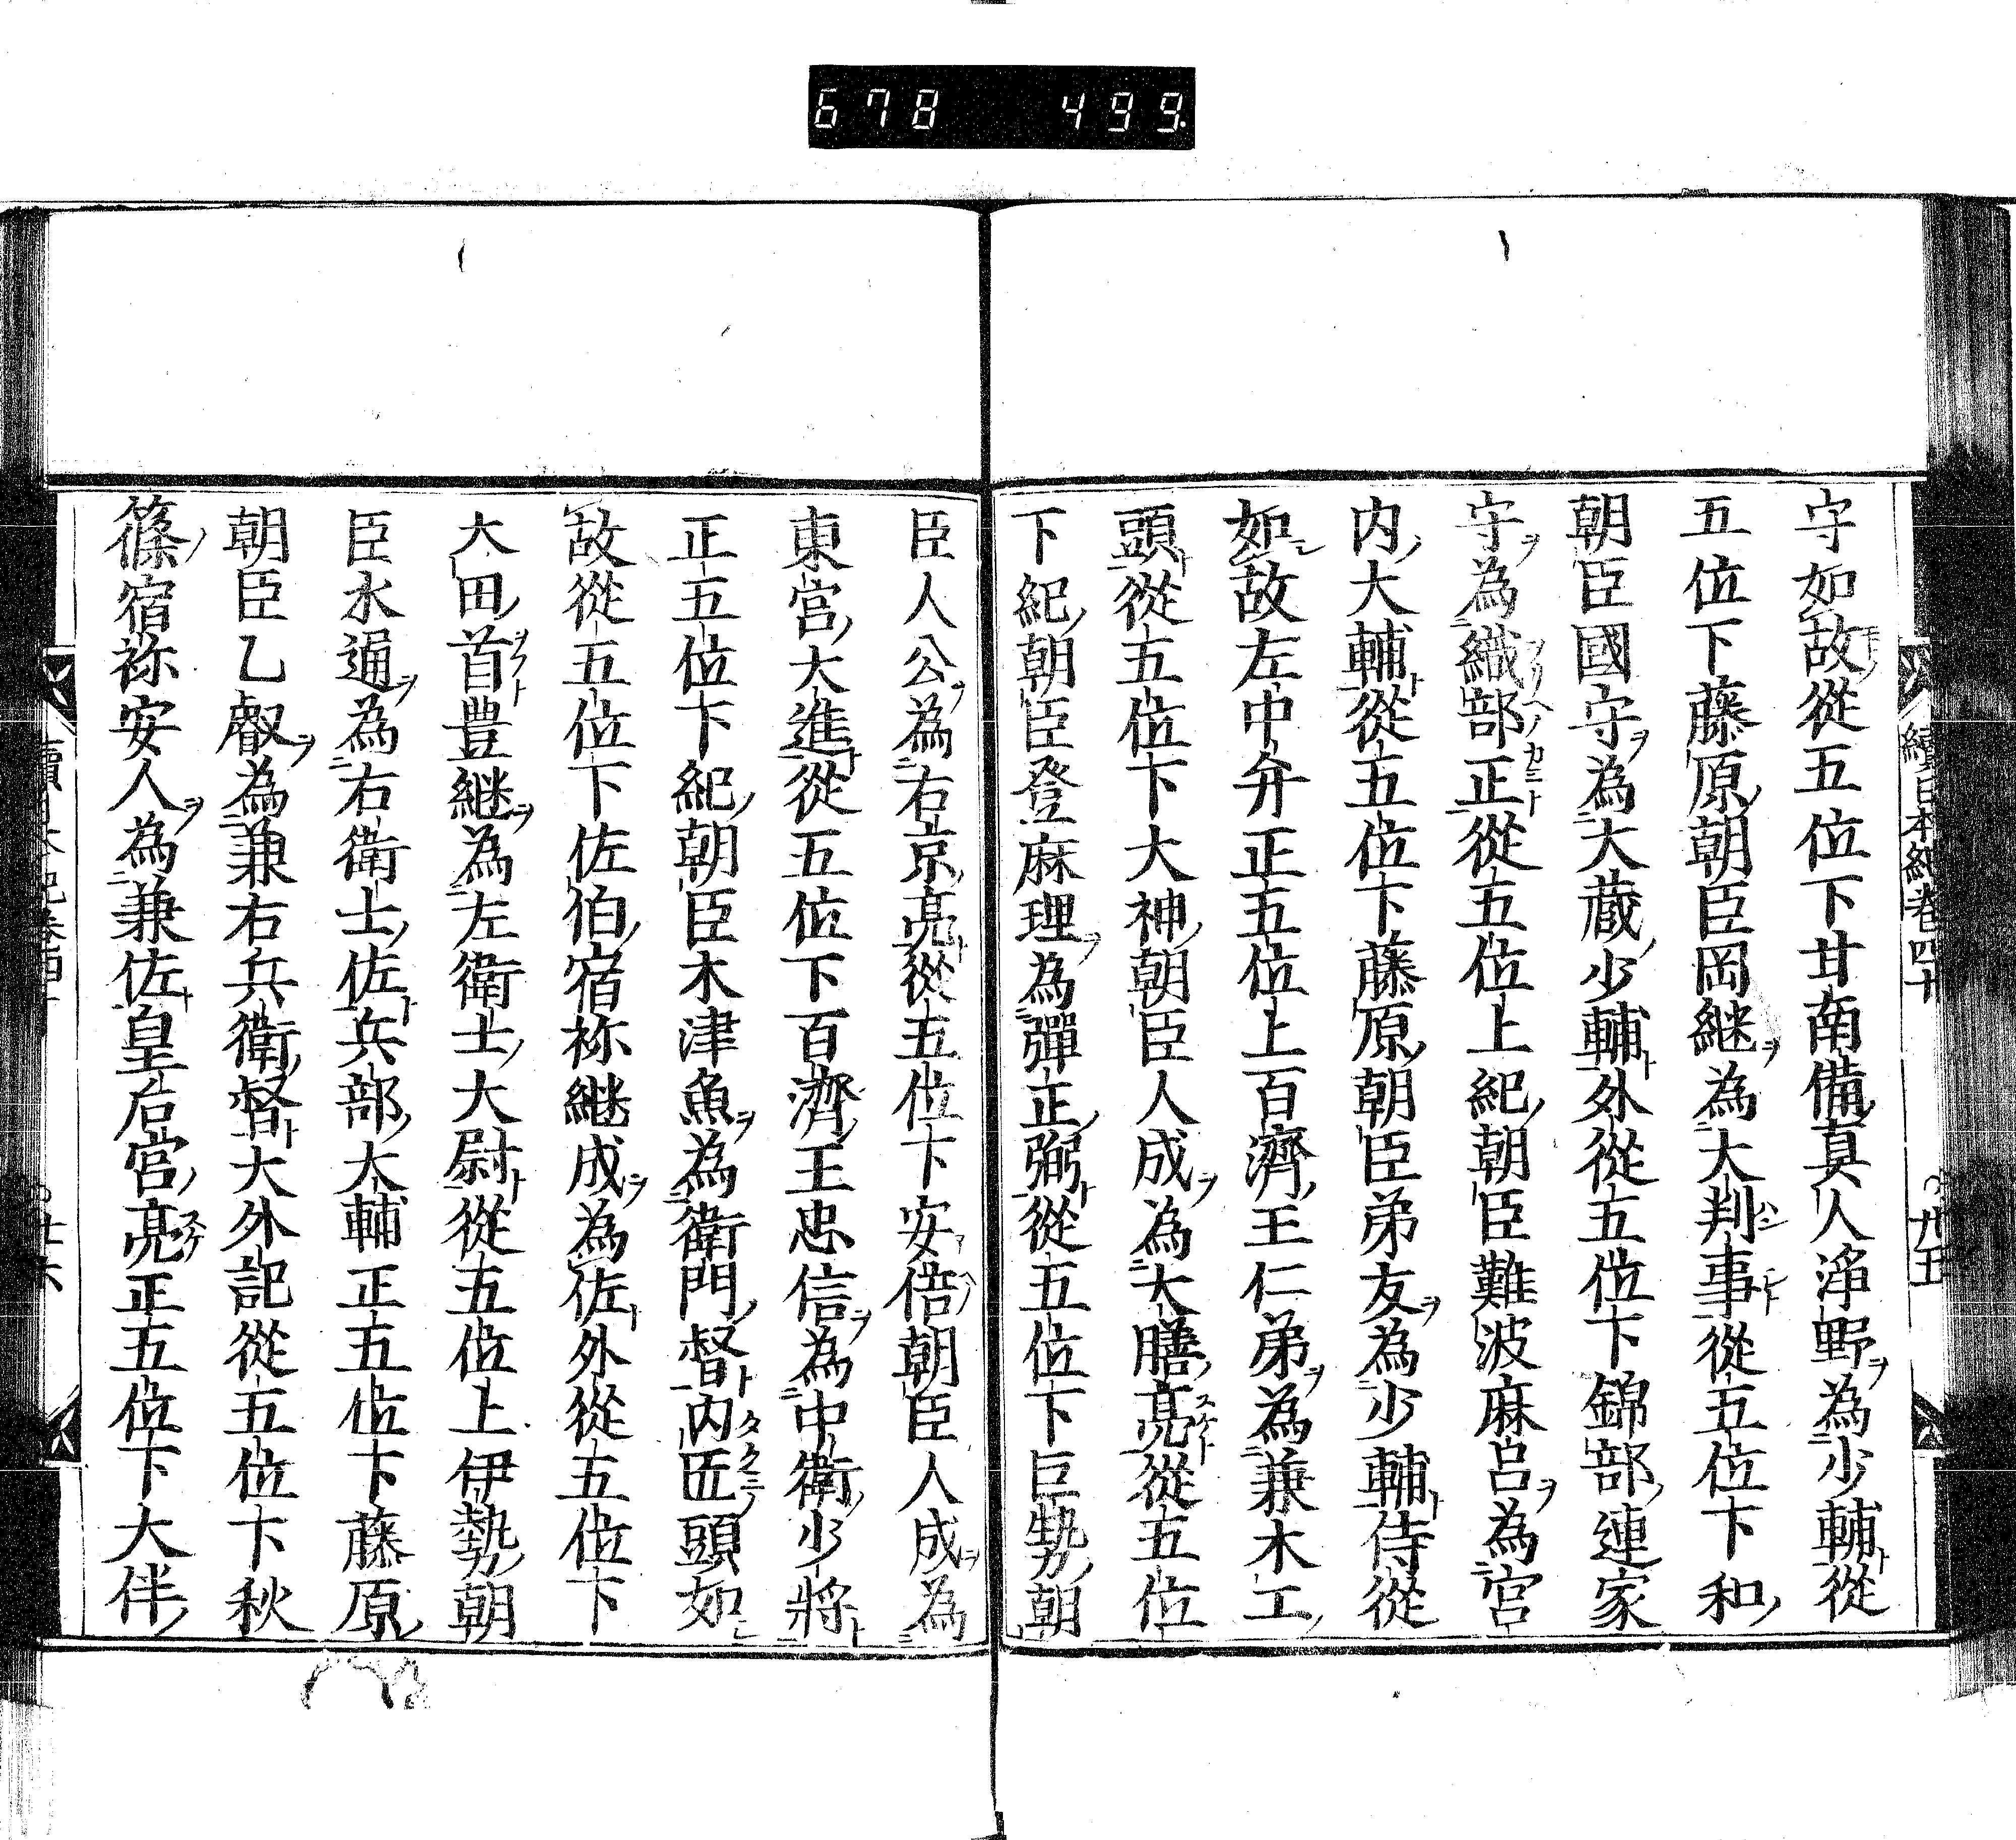 678 499
續日本紀卷四十
卅五
守如故從五位下甘南備真人渟野為少輔從
五位下藤原朝臣岡継為大判事從五位下和
朝臣國守為大藏少輔外從五位下錦部連家
守為織部正從五位上紀朝臣難波麻呂為宮
内大輔從五位下藤原朝臣弟友為少輔侍從
如故左中弁正五位上百濟王仁弟為兼木工
頭從五位下大神朝臣人成為大膳亮從五位
下紀朝臣登麻理為彈正弼從五位下巨勢朝
臣人公為右京亮從五位下安倍朝臣人成為
東宮大進從五位下百濟王忠信為中衛少將
正五位下紀朝臣木津魚為衛門督内匠頭如
故從五位下佐伯宿祢継成為佐外從五位下
大田首豊継為左衛士大尉從五位上伊勢朝
臣水通為右衛士佐兵部大輔正五位下藤原
朝臣乙叡為兼右兵衛督大外記從五位下秋
篠宿祢安人為兼佐皇后宮亮正五位下大伴